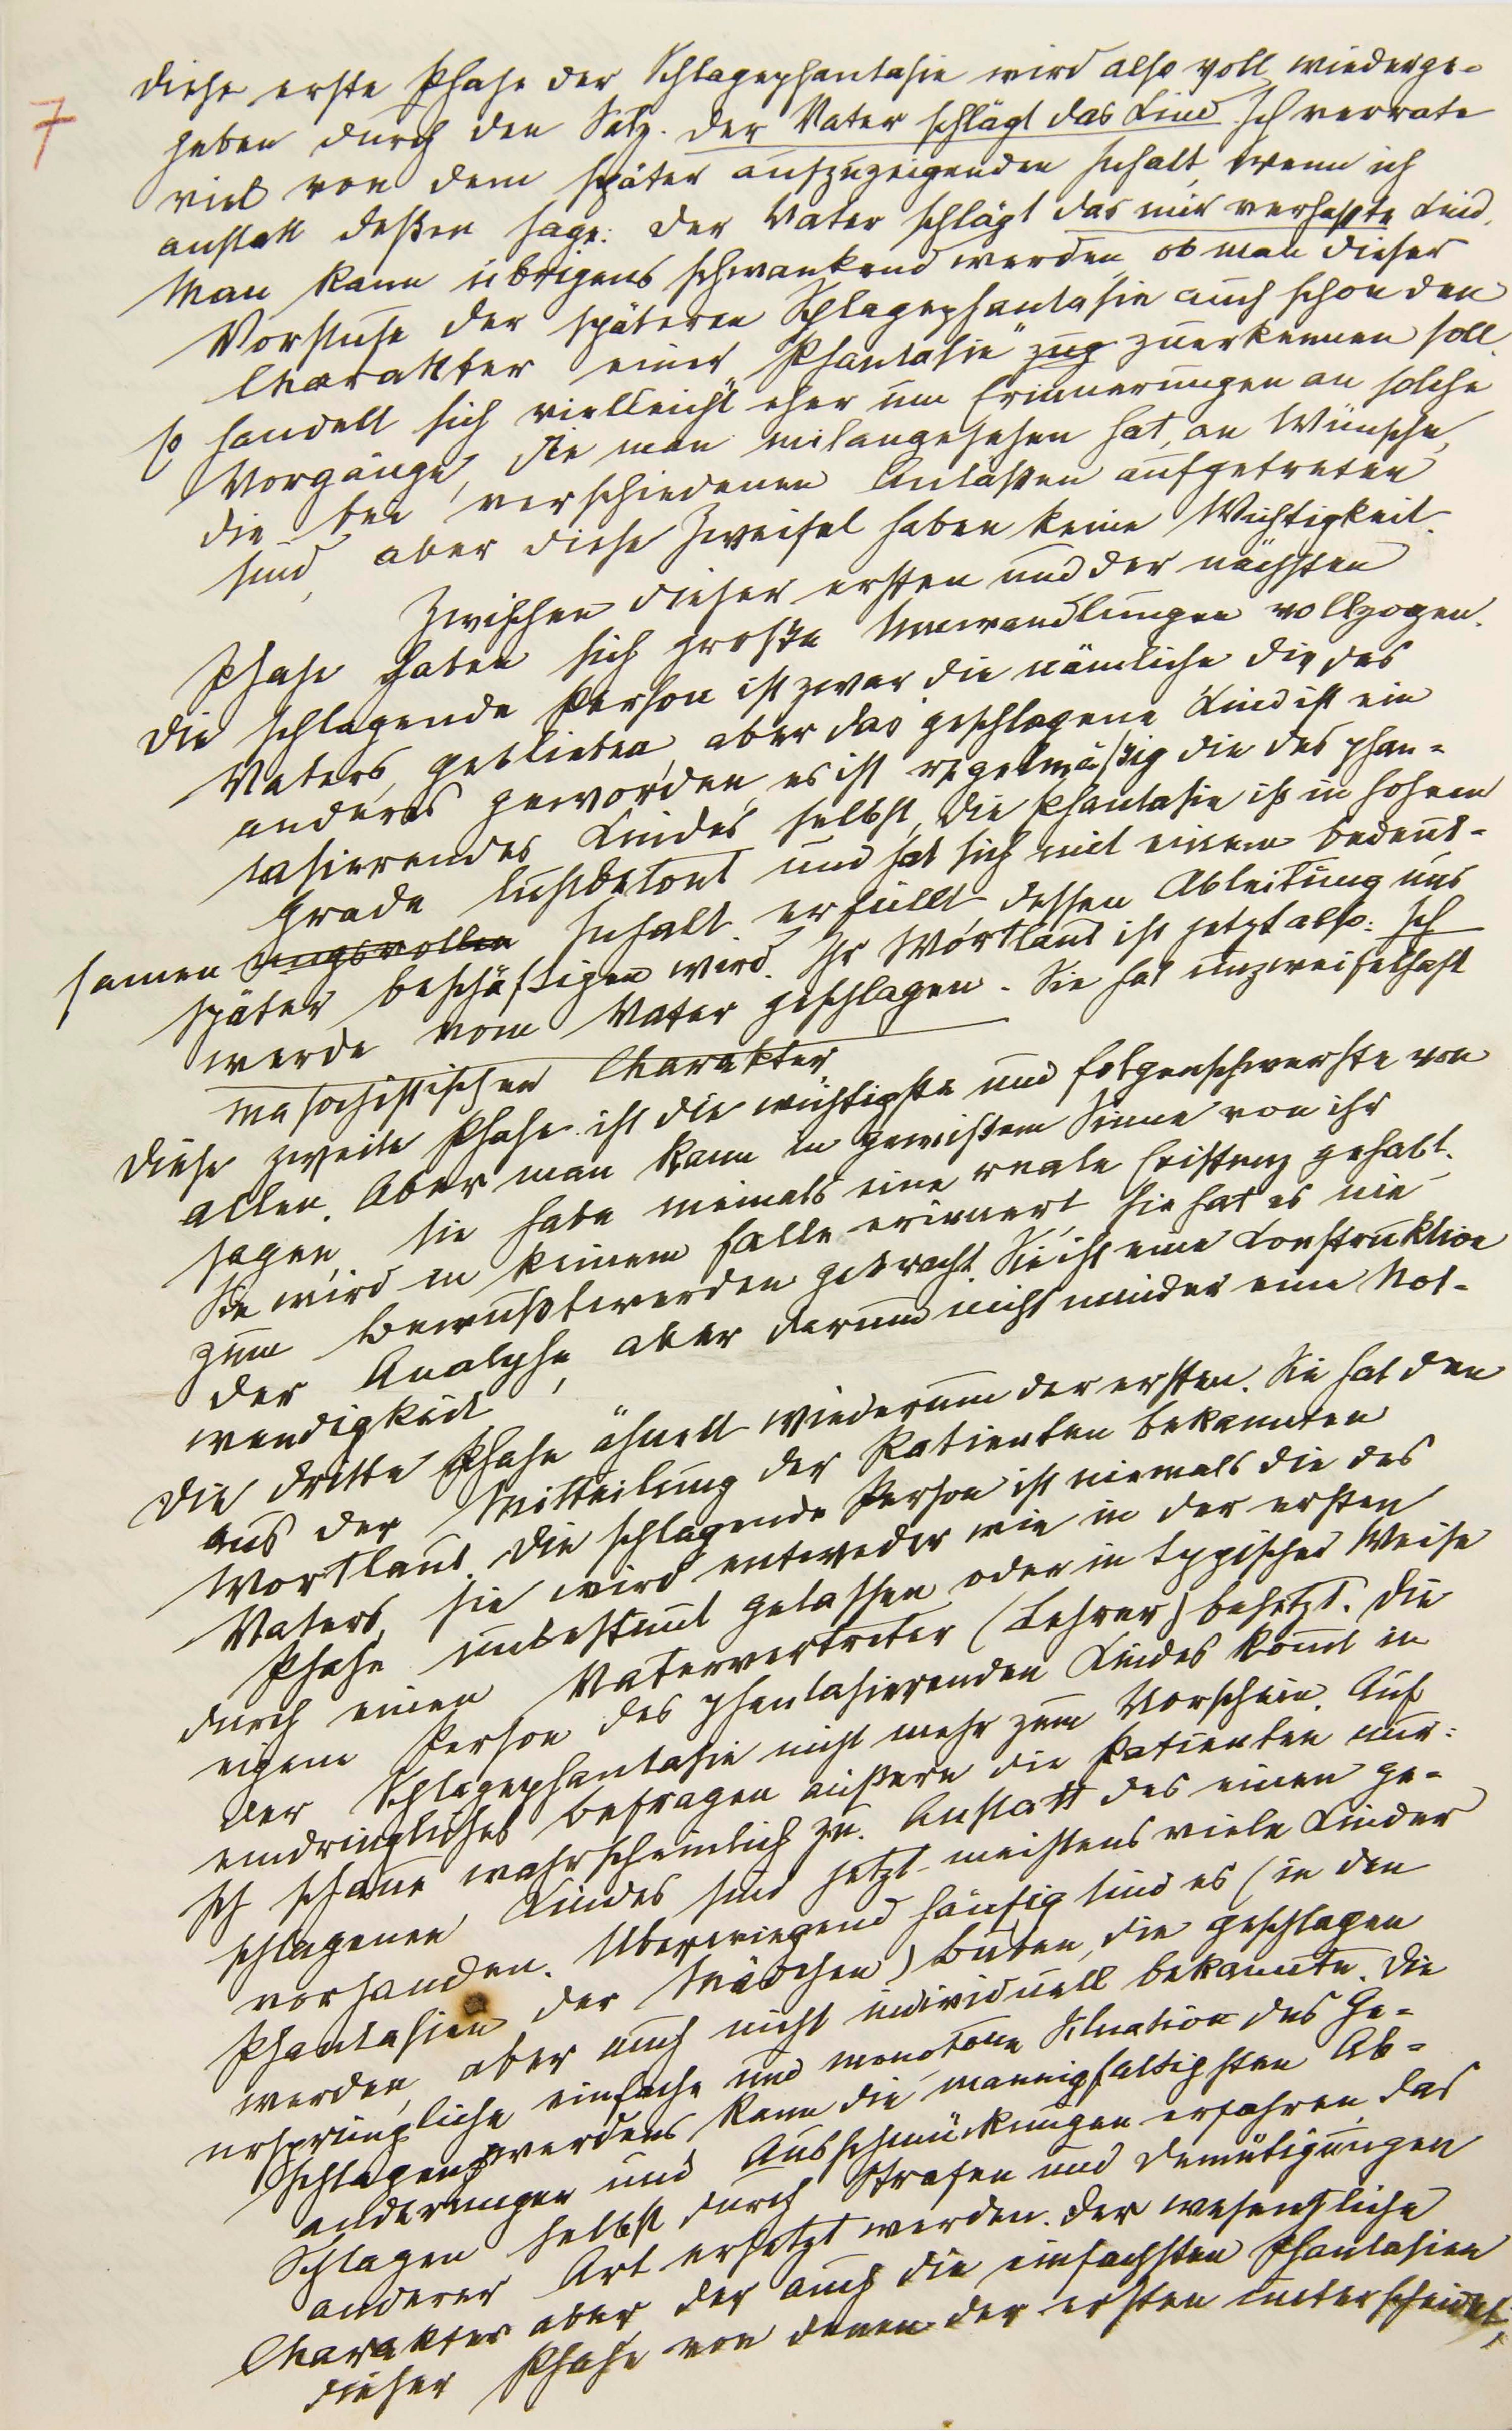 7
Diese erste Phase der Schlagephantasie wird also voll wiederge-
geben durch den Satz: Der Vater schlägt das Kind. Ich verrate
viel von dem später aufzuzeigenden Inhalt, wenn ich
anstatt deßen sage: Der Vater schlägt das mir verhaßte Kind.
Man kann übrigens schwankend werden, ob man dieser
Vorstufe der späteren Schlagephantasie auch schon den
Charakter einer „Phantasie" zug zuerkennen soll.
Es handelt sich vielleicht eher um Erinnerungen an solche
Vorgänge, die man mitangesehen hat, an Wünsche,
die bei verschiedenen Anläßen aufgetreten
sind, aber diese Zweifel haben keine Wichtigkeit.
Zwischen dieser ersten und der nächsten
Phase haben sich große Umwandlungen vollzogen.
Die schlagende Person ist zwar die nämliche, die des
Vaters, geblieben, aber das geschlagene Kind ist ein
anderes geworden, es ist regelmäßig die des phan-
tasierendes Kindes selbst, die Phantasie ist in hohem
Grade lustbetont und hat sich mit einem bedeut-
samen ungsvollen Inhalt erfüllt, dessen Ableitung uns
später beschäftigen wird. Ihr Wortlaut ist jetzt also: Ich
werde vom Vater geschlagen. Sie hat unzweifelhaft
masochistischen Charakter.
Diese zweite Phase ist die wichtigste und folgenschwerste von
allen. Aber man kann in gewißem Sinne von ihr
sagen, sie habe niemals eine reale Existenz gehabt.
Sie wird in keinem Falle erinnert, sie hat es nie
zum Bewußtwerden gebracht. Sie ist eine Konstruktion
der Analyse, aber darum nicht minder eine Not-
wendigkeit.
Die dritte Phase ähnelt wiederum der ersten. Sie hat den
aus der Mitteilung der Patienten bekannten
Wortlaut. Die schlagende Person ist niemals die des
Vaters, sie wird entweder wie in der ersten
Phase unbestimt gelassen oder in typischer Weise
durch einen Vatervertreter (Lehrer) besetzt. Die
eigene Person des phantasierenden Kindes komt in
der Schlagephantasie nicht mehr zum Vorschein. Auf
eindringliches Befragen äußern die Patienten nur:
Ich schaue wahrscheinlich zu. Anstatt des einen ge-
schlagenen Kindes sind jetzt meistens viele Kinder
vorhanden. Überwiegend häufig sind es (in den
Phantasien der Mädchen) Buben, die geschlagen
werden, aber auch nicht individuell bekannte. Die
ursprüngliche einfache und monotone Situation des Ge-
schlagenwerdens kann die mannigfaltigsten Ab-
änderungen und Ausschmückungen erfahren, das
Schlagen selbst durch Strafen und Demütigungen
anderer Art ersetzt werden. Der wesentliche
Charakter aber, der auch die einfachsten Phantasien
dieser Phase von denen der ersten unterscheidet,